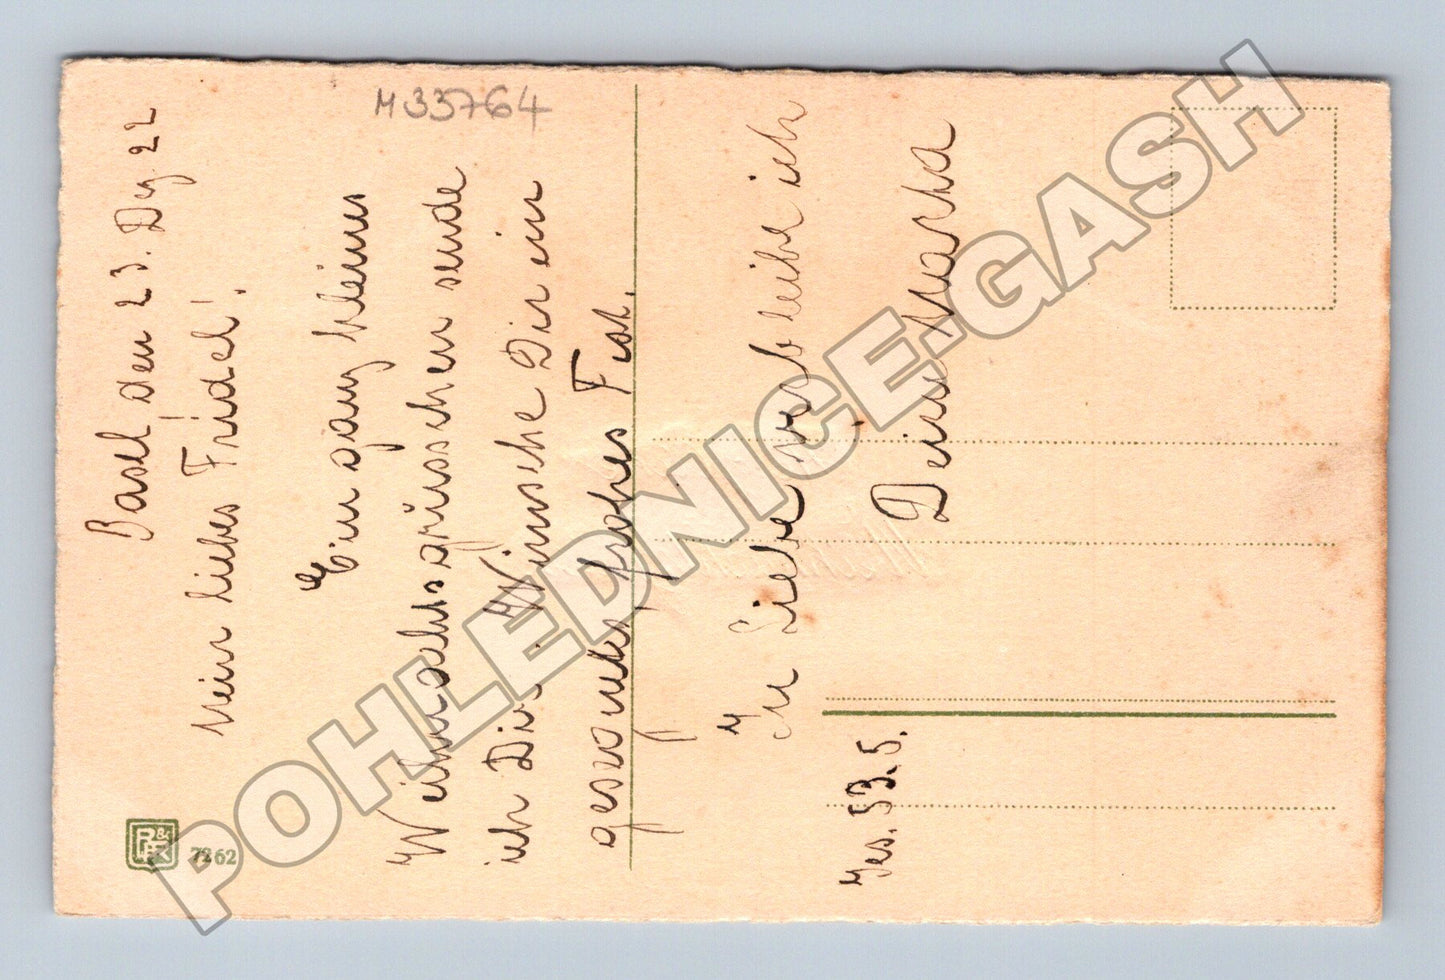 M33764
Basel den 23. Dez 22
Mein liebes Friedel!
Ein ganz kleines
Weihnachtsgrüsschen sende
ich Dir. Wünsche Dir ein
gesundes, frohes Fest.
In Liebe verbleibe ich
Deine Martha
Jes. 53.5.
7262
POHLEDNICE-GASH